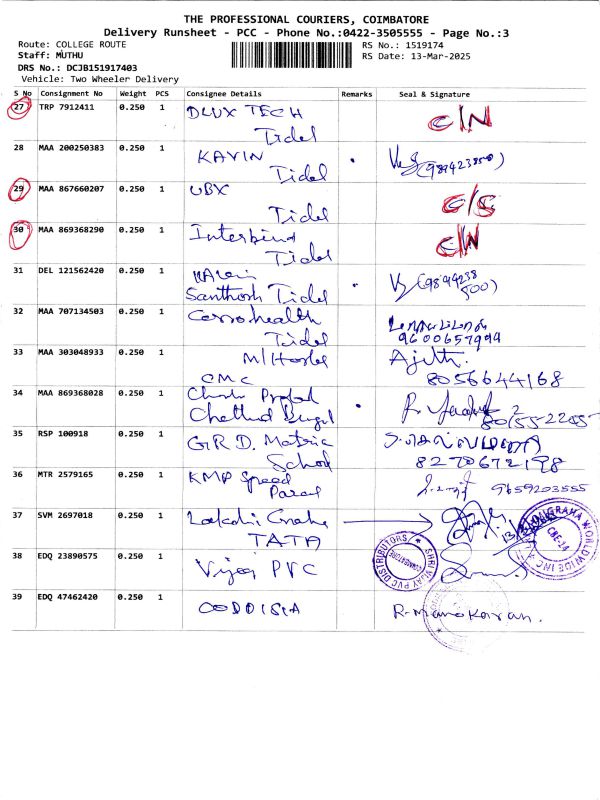 THE PROFESSIONAL COURIERS, COIMBATORE
Delivery Runsheet - PCC - Phone No.:0422-3505555 - Page No.:3
Route: COLLEGE ROUTE
RS No.: 1519174
Staff: MUTHU
RS Date: 13-Mar-2025
DRS No.: DCJB151917403
Vehicle: Two Wheeler Delivery
S No Consignment No Weight PCS Consignee Details Remarks Seal & Signature
27 TRP 7912411 0.250 1 DLUX TECH C/N
Tidel
28 MAA 200250383 0.250 1 KAVIN
Tidel
29 MAA 867660207 0.250 1 UBX C/S
Tidel
30 MAA 869368290 0.250 1 Interbind C/N
Tidel
31 DEL 121562420 0.250 1
Santhosh Tidel
32 MAA 707134503 0.250 1
Tidel 9600657999
33 MAA 303048933 0.250 1 M/Hostel Ajith.
CMC 8056644168
34 MAA 869368028 0.250 1
35 RSP 100918 0.250 1 G.R.D. Matric
School 8270672198
36 MTR 2579165 0.250 1 KMP Speed 9659203555
Parcel
37 SVM 2697018 0.250 1
TATA
38 EDQ 23890575 0.250 1 Vijay PVC
SHRI VIJAY PVC DISTRIBUTORS
COIMBATORE
39 EDQ 47462420 0.250 1 CODDISIA R. Manokaran.